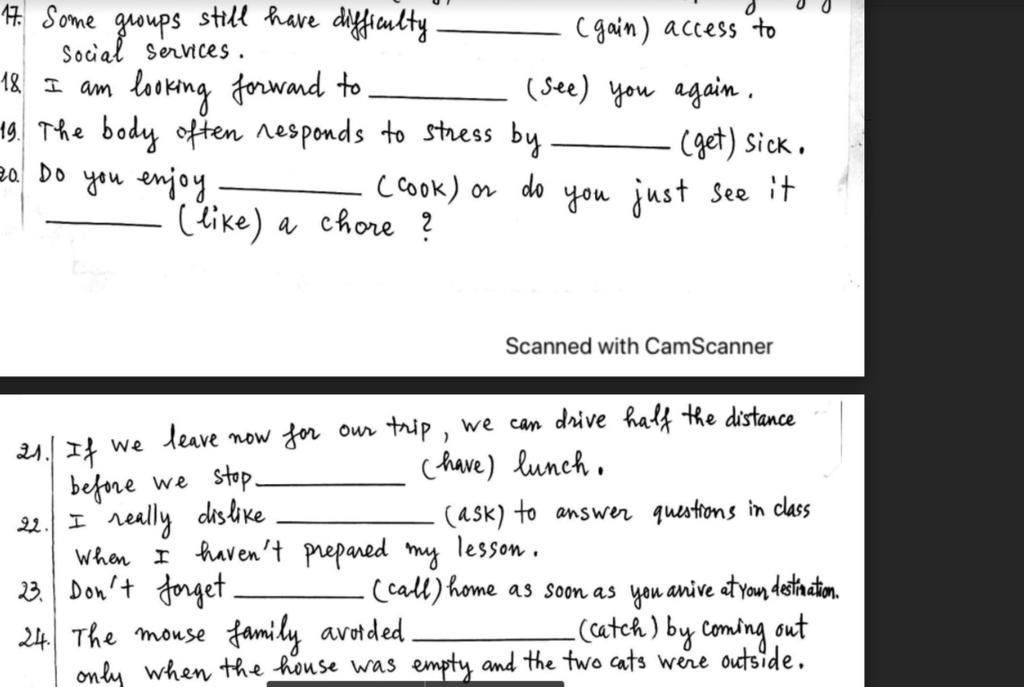 17. Some groups still have difficulty ________ (gain) access to
social services.
18 I am looking forward to ________ (see) you again.
19. The body often responds to stress by ________ (get) sick.
20. Do you enjoy ________ (cook) or do you just see it
________ (like) a chore ?
Scanned with CamScanner
21. If we leave now for our trip, we can drive half the distance
before we stop ________ (have) lunch.
22. I really dislike ________ (ask) to answer questions in class
when I haven't prepared my lesson.
23. Don't forget ________ (call) home as soon as you arrive at your destination.
24. The mouse family avoided ________ (catch) by coming out
only when the house was empty and the two cats were outside.